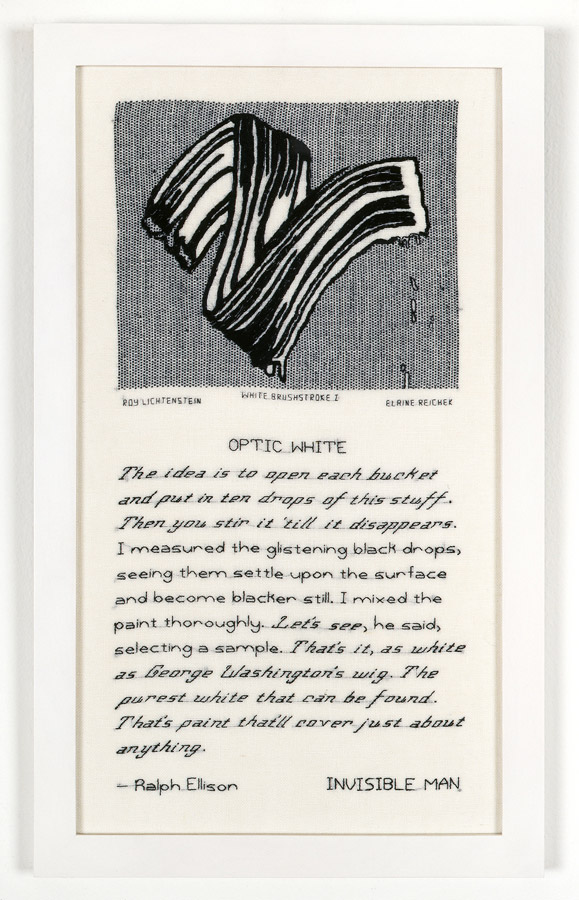 ROY LICHTENSTEIN WHITE BRUSHSTROKE I ELAINE REICHEK
OPTIC WHITE
The idea is to open each bucket
and put in ten drops of this stuff.
Then you stir it 'till it disappears.
I measured the glistening black drops,
seeing them settle upon the surface
and become blacker still. I mixed the
paint thoroughly. Let's see, he said,
selecting a sample. That's it, as white
as George Washington's wig. The
purest white that can be found.
That's paint that'll cover just about
anything.
– Ralph Ellison INVISIBLE MAN